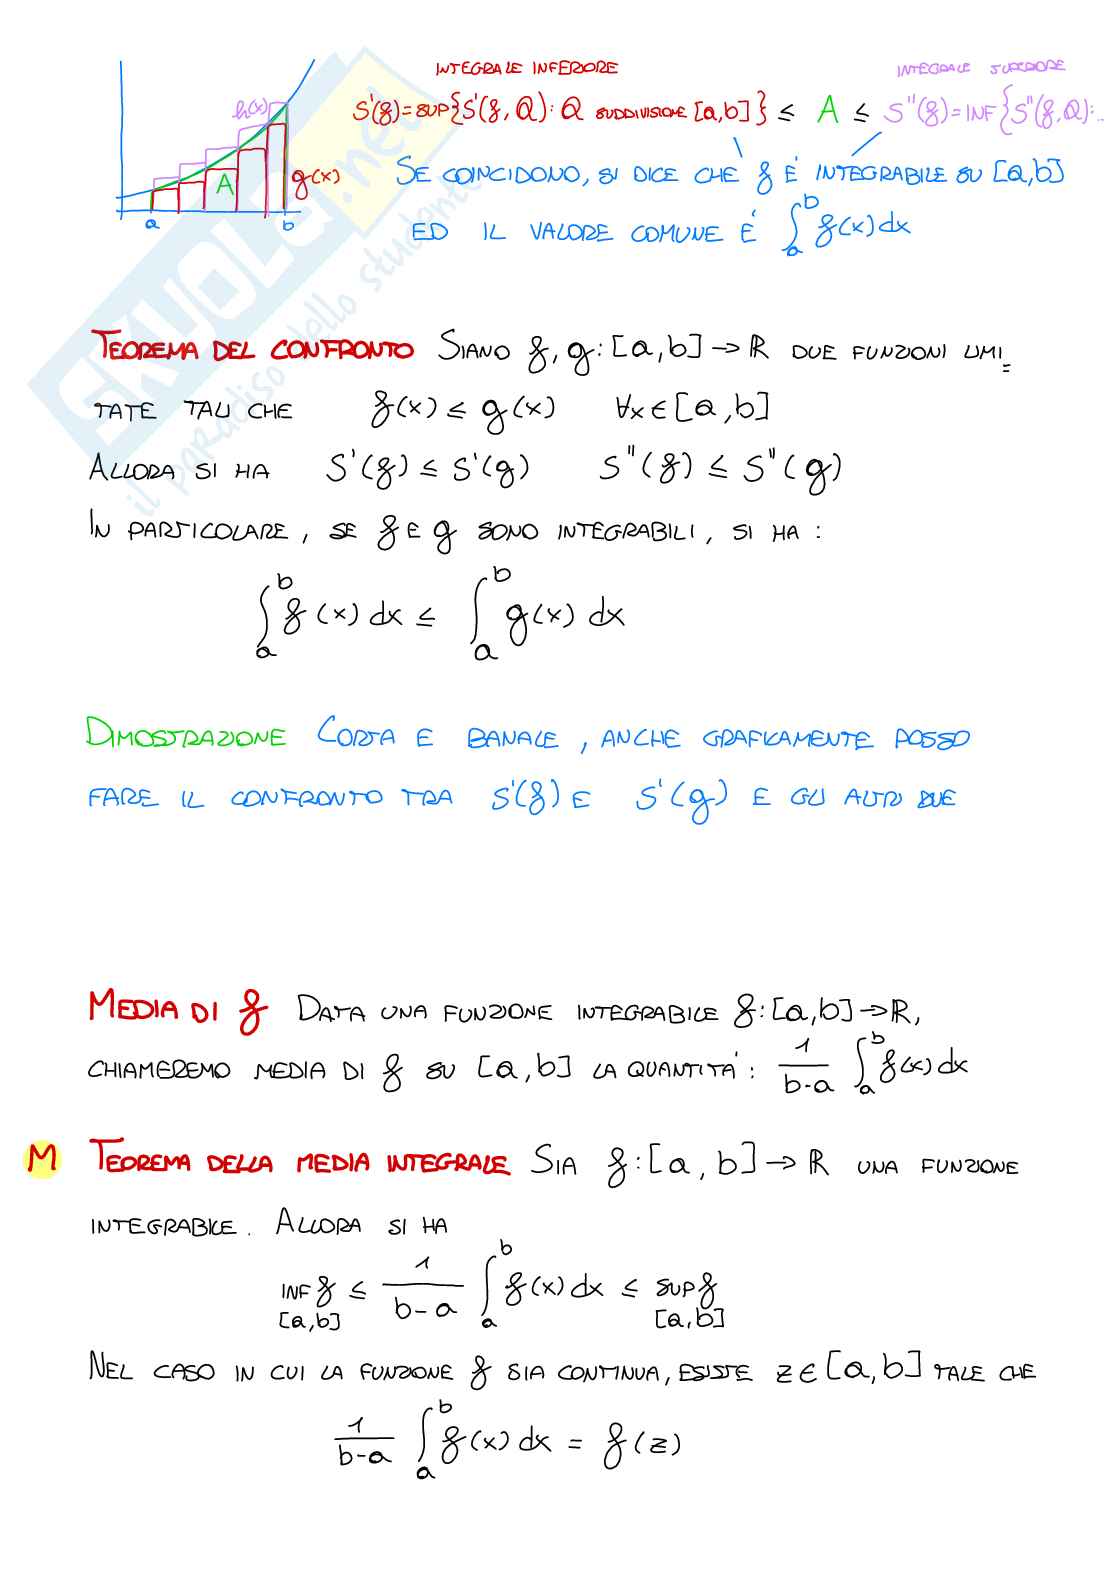 INTEGRALE INFERIORE INTEGRALE SUPERIORE
S'(f)=SUP{S'(f,Q): Q SUDDIVISIONE [a,b]} ≤ A ≤ S''(f)=INF{S''(f,Q):...
h(x)
g(x)
A
a b
SE COINCIDONO, SI DICE CHE f È INTEGRABILE SU [a,b]
ED IL VALORE COMUNE È ∫_a^b f(x)dx
TEOREMA DEL CONFRONTO SIANO f, g: [a,b] → ℝ DUE FUNZIONI LIMI=
TATE TALI CHE f(x) ≤ g(x) ∀x∈[a,b]
ALLORA SI HA S'(f) ≤ S'(g) S''(f) ≤ S''(g)
IN PARTICOLARE, SE f E g SONO INTEGRABILI, SI HA:
∫_a^b f(x) dx ≤ ∫_a^b g(x) dx
DIMOSTRAZIONE CORTA E BANALE, ANCHE GRAFICAMENTE POSSO
FARE IL CONFRONTO TRA S'(f) E S'(g) E GLI ALTRI DUE
MEDIA DI f DATA UNA FUNZIONE INTEGRABILE f: [a,b] → ℝ,
CHIAMEREMO MEDIA DI f SU [a,b] LA QUANTITÀ: 1/(b-a) ∫_a^b f(x) dx
M TEOREMA DELLA MEDIA INTEGRALE SIA f: [a,b] → ℝ UNA FUNZIONE
INTEGRABILE. ALLORA SI HA
INF f [a,b] ≤ 1/(b-a) ∫_a^b f(x) dx ≤ SUP f [a,b]
NEL CASO IN CUI LA FUNZIONE f SIA CONTINUA, ESISTE z∈[a,b] TALE CHE
1/(b-a) ∫_a^b f(x) dx = f(z)
SKUOLA.net
il paradiso dello studente